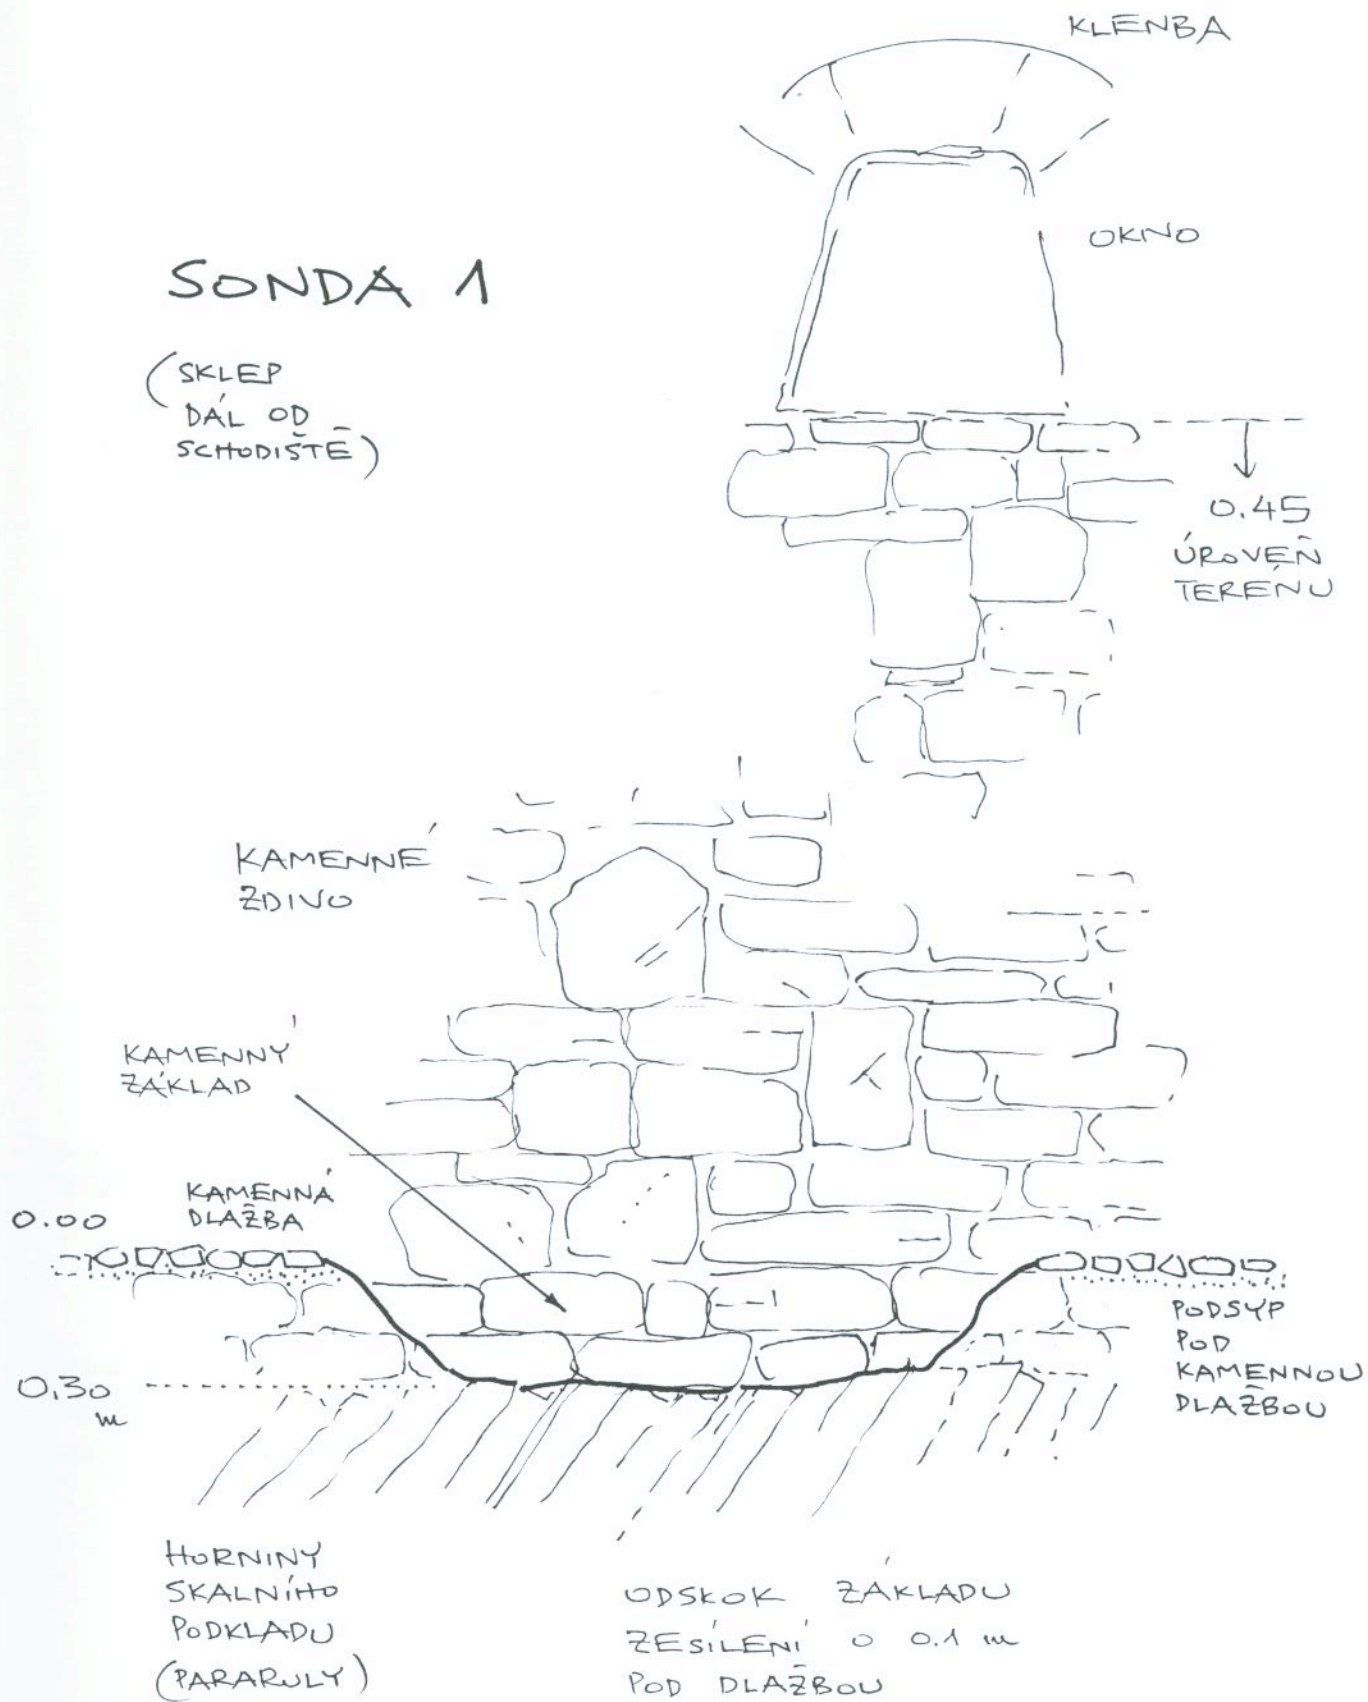 KLENBA
OKNO
SONDA 1
(SKLEP
DÁL OD
SCHODIŠTĚ)
0.45
ÚROVEŇ
TERÉNU
KAMENNÉ
ZDIVO
KAMENNÝ
ZÁKLAD
KAMENNÁ
DLAŽBA
0.00
PODSYP
POD
KAMENNOU
DLAŽBOU
0.30
m
HORNINY
SKALNÍHO
PODKLADU
(PARARULY)
ODSKOK ZÁKLADU
ZESÍLENÍ O 0.1 m
POD DLAŽBOU